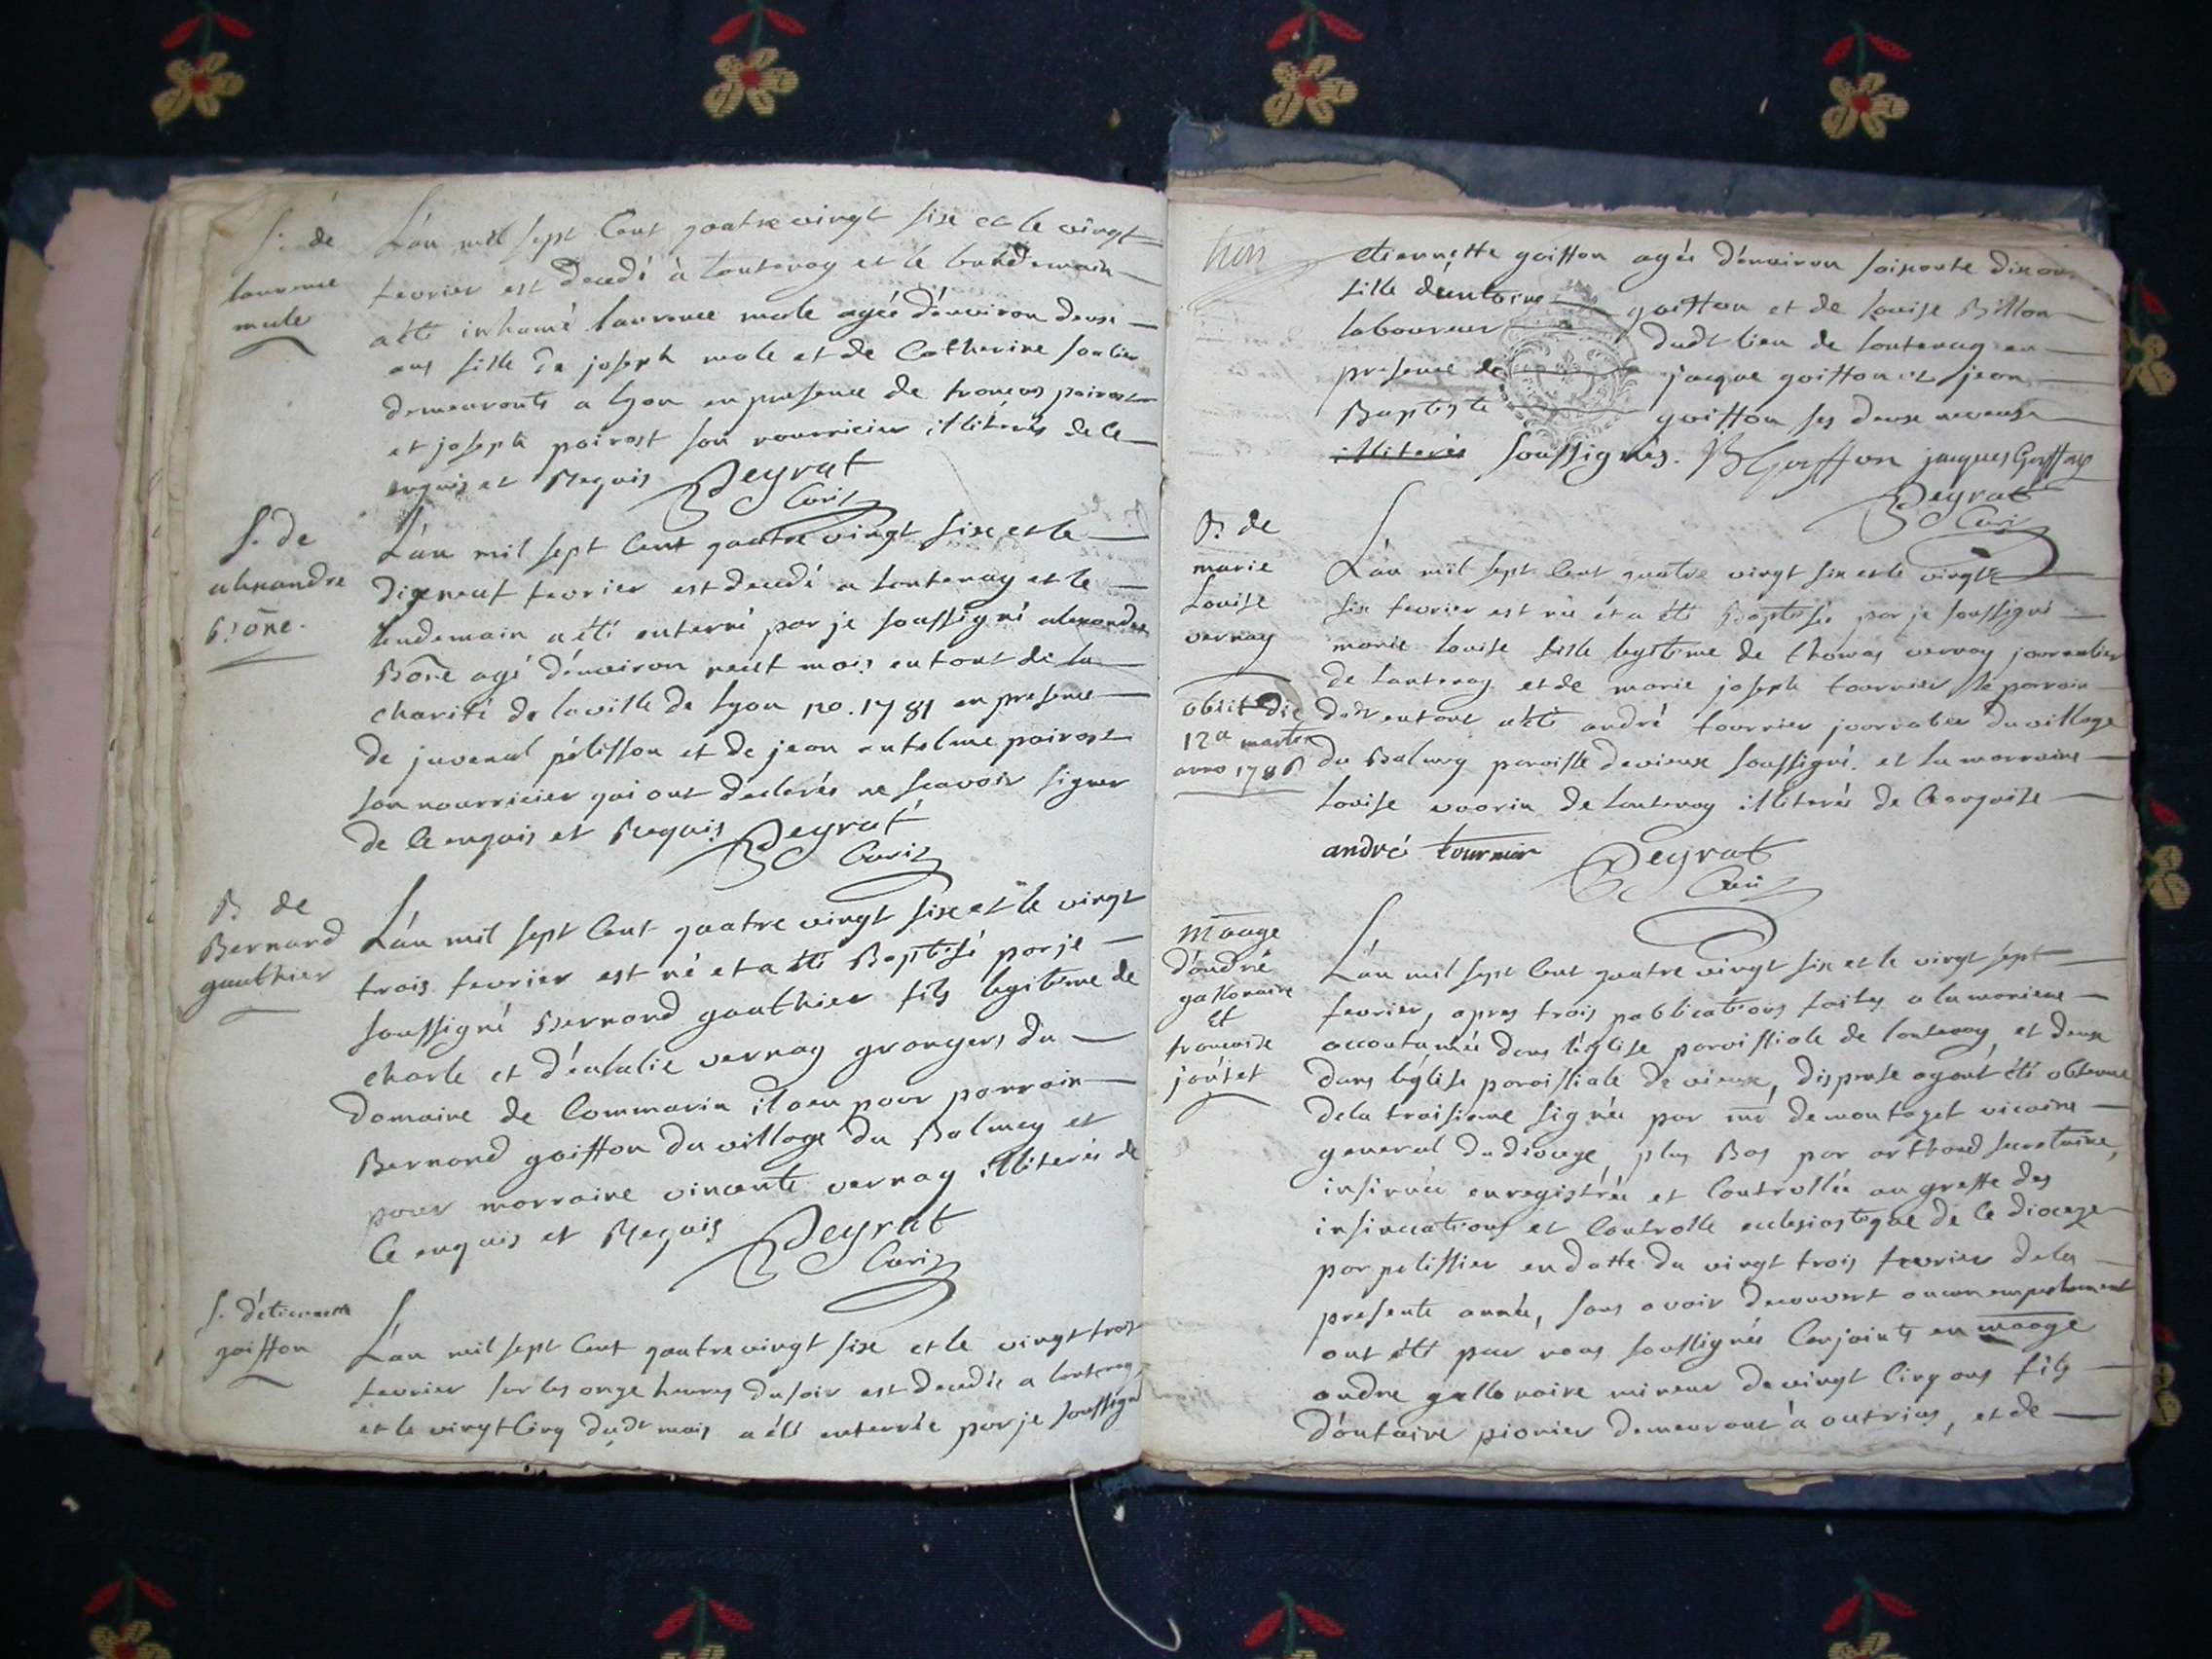 S. de
laurence
mule
L'an mil sept Cent quatre vingt six et le vingt
fevrier est decedé à lantenay et le lendemain
a été inhumé laurence mule agée d'environ deux
ans fille de joseph mule et de Catherine
demeurants a lyon en presence de françois poirost
et joseph poirost son nourricier illiterés de ce
enquis et Requis Deyrat
Curé
S. de
alexandre
Bone.
L'an mil sept Cent quatre vingt six et le
dixneuf fevrier est decedé a lantenay et le
lendemain a été enterré par je soussigné alexandre
Bone agé d'environ neuf mois enfant de la
charité de la ville de lyon no. 1781 en presence
de juvenal pélisson et de jean antelme poirost
son nourricier qui ont declarés ne scavoir signer
de ce enquis et Requis Deyrat
Curé
B. de
Bernard
gauthier
L'an mil sept Cent quatre vingt six et le vingt
trois fevrier est né et a été Baptisé par je
soussigné Bernard gauthier fils legitime de
charle et d'eulalie vernay grangers du
Domaine de Commarin il a eu pour parrain
Bernard goiffon du village du Balmey et
pour marraine vincente vernay illiterés de
Ce enquis et Requis Deyrat
Curé
S. d'étiennette
goiffon
L'an mil sept Cent quatre vingt six et le vingt trois
fevrier sur les onze heures du soir est decedée a lantenay,
et le vingt Cinq dudt mois a été enterrée par je soussigné
trois
étiennette goiffon agée d'environ soixante dix ans
fille d'antoine goiffon et de louise Billon
laboureur dudt lieu de lantenay en
presence de jacque goiffon et jean
Baptiste goiffon ses deux neveux
illiterés soussignés. JB Goiffon jacques Goiffon
Deyrat
Curé
B. de
marie
Louise
vernay
L'an mil sept Cent quatre vingt six et le vingt
six fevrier est née et a été Baptisée par je soussigné
marie louise fille legitime de thomas vernay journalier
de lantenay et de marie joseph tournier le parrain
obiit die
12a martii
anno 1786
dudt enfant a été andré tournier journalier du village
du Balmey paroisse de vieux soussigné. et la marraine
louise de lantenay illiterée de Ce enquise
andré tournier Deyrat
Curé
maage
d'andré
gallonaire
et
françoise
joutet
L'an mil sept Cent quatre vingt six et le vingt sept
fevrier, apres trois publications faites a la maniere
accoutumée dans l'église paroissiale de lantenay, et deux
dans l'église paroissiale de vieux, dispense ayant été obtenue
de la troisieme signée par mr de montazet vicaire
general du diocese, plus Bas par secretaire,
insinuée enregistrée et Controllée au greffe des
insinuations et Controlle ecclesiastique de Ce diocese
par pelissier en datte du vingt trois fevrier de la
presente année, sans avoir decouvert aucun empechement
ont été par nous soussignés Conjoints en maage
andre gallonaire mineur de vingt Cinq ans fils
d'antoine pionier demeurant a outriaz, et de